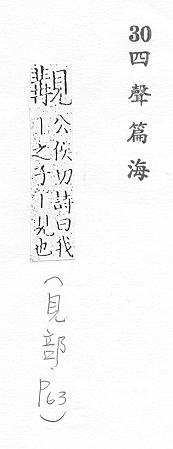 30 四聲篇海
覯
公侯切詩曰我
丨之子丨見也
(見部, P63)